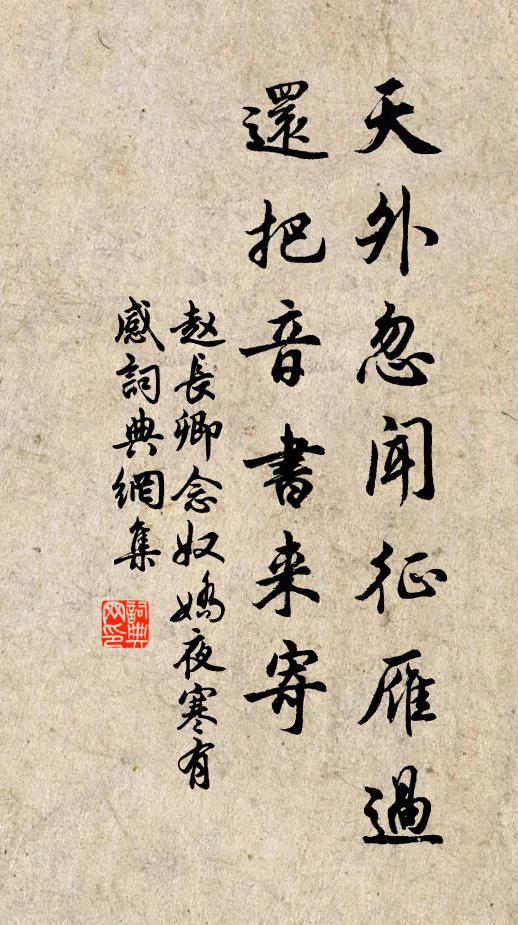 天外忽闻征雁過
還把音書来寄
赵長卿念奴嬌夜寒有
感詞典網集
詞典
网印